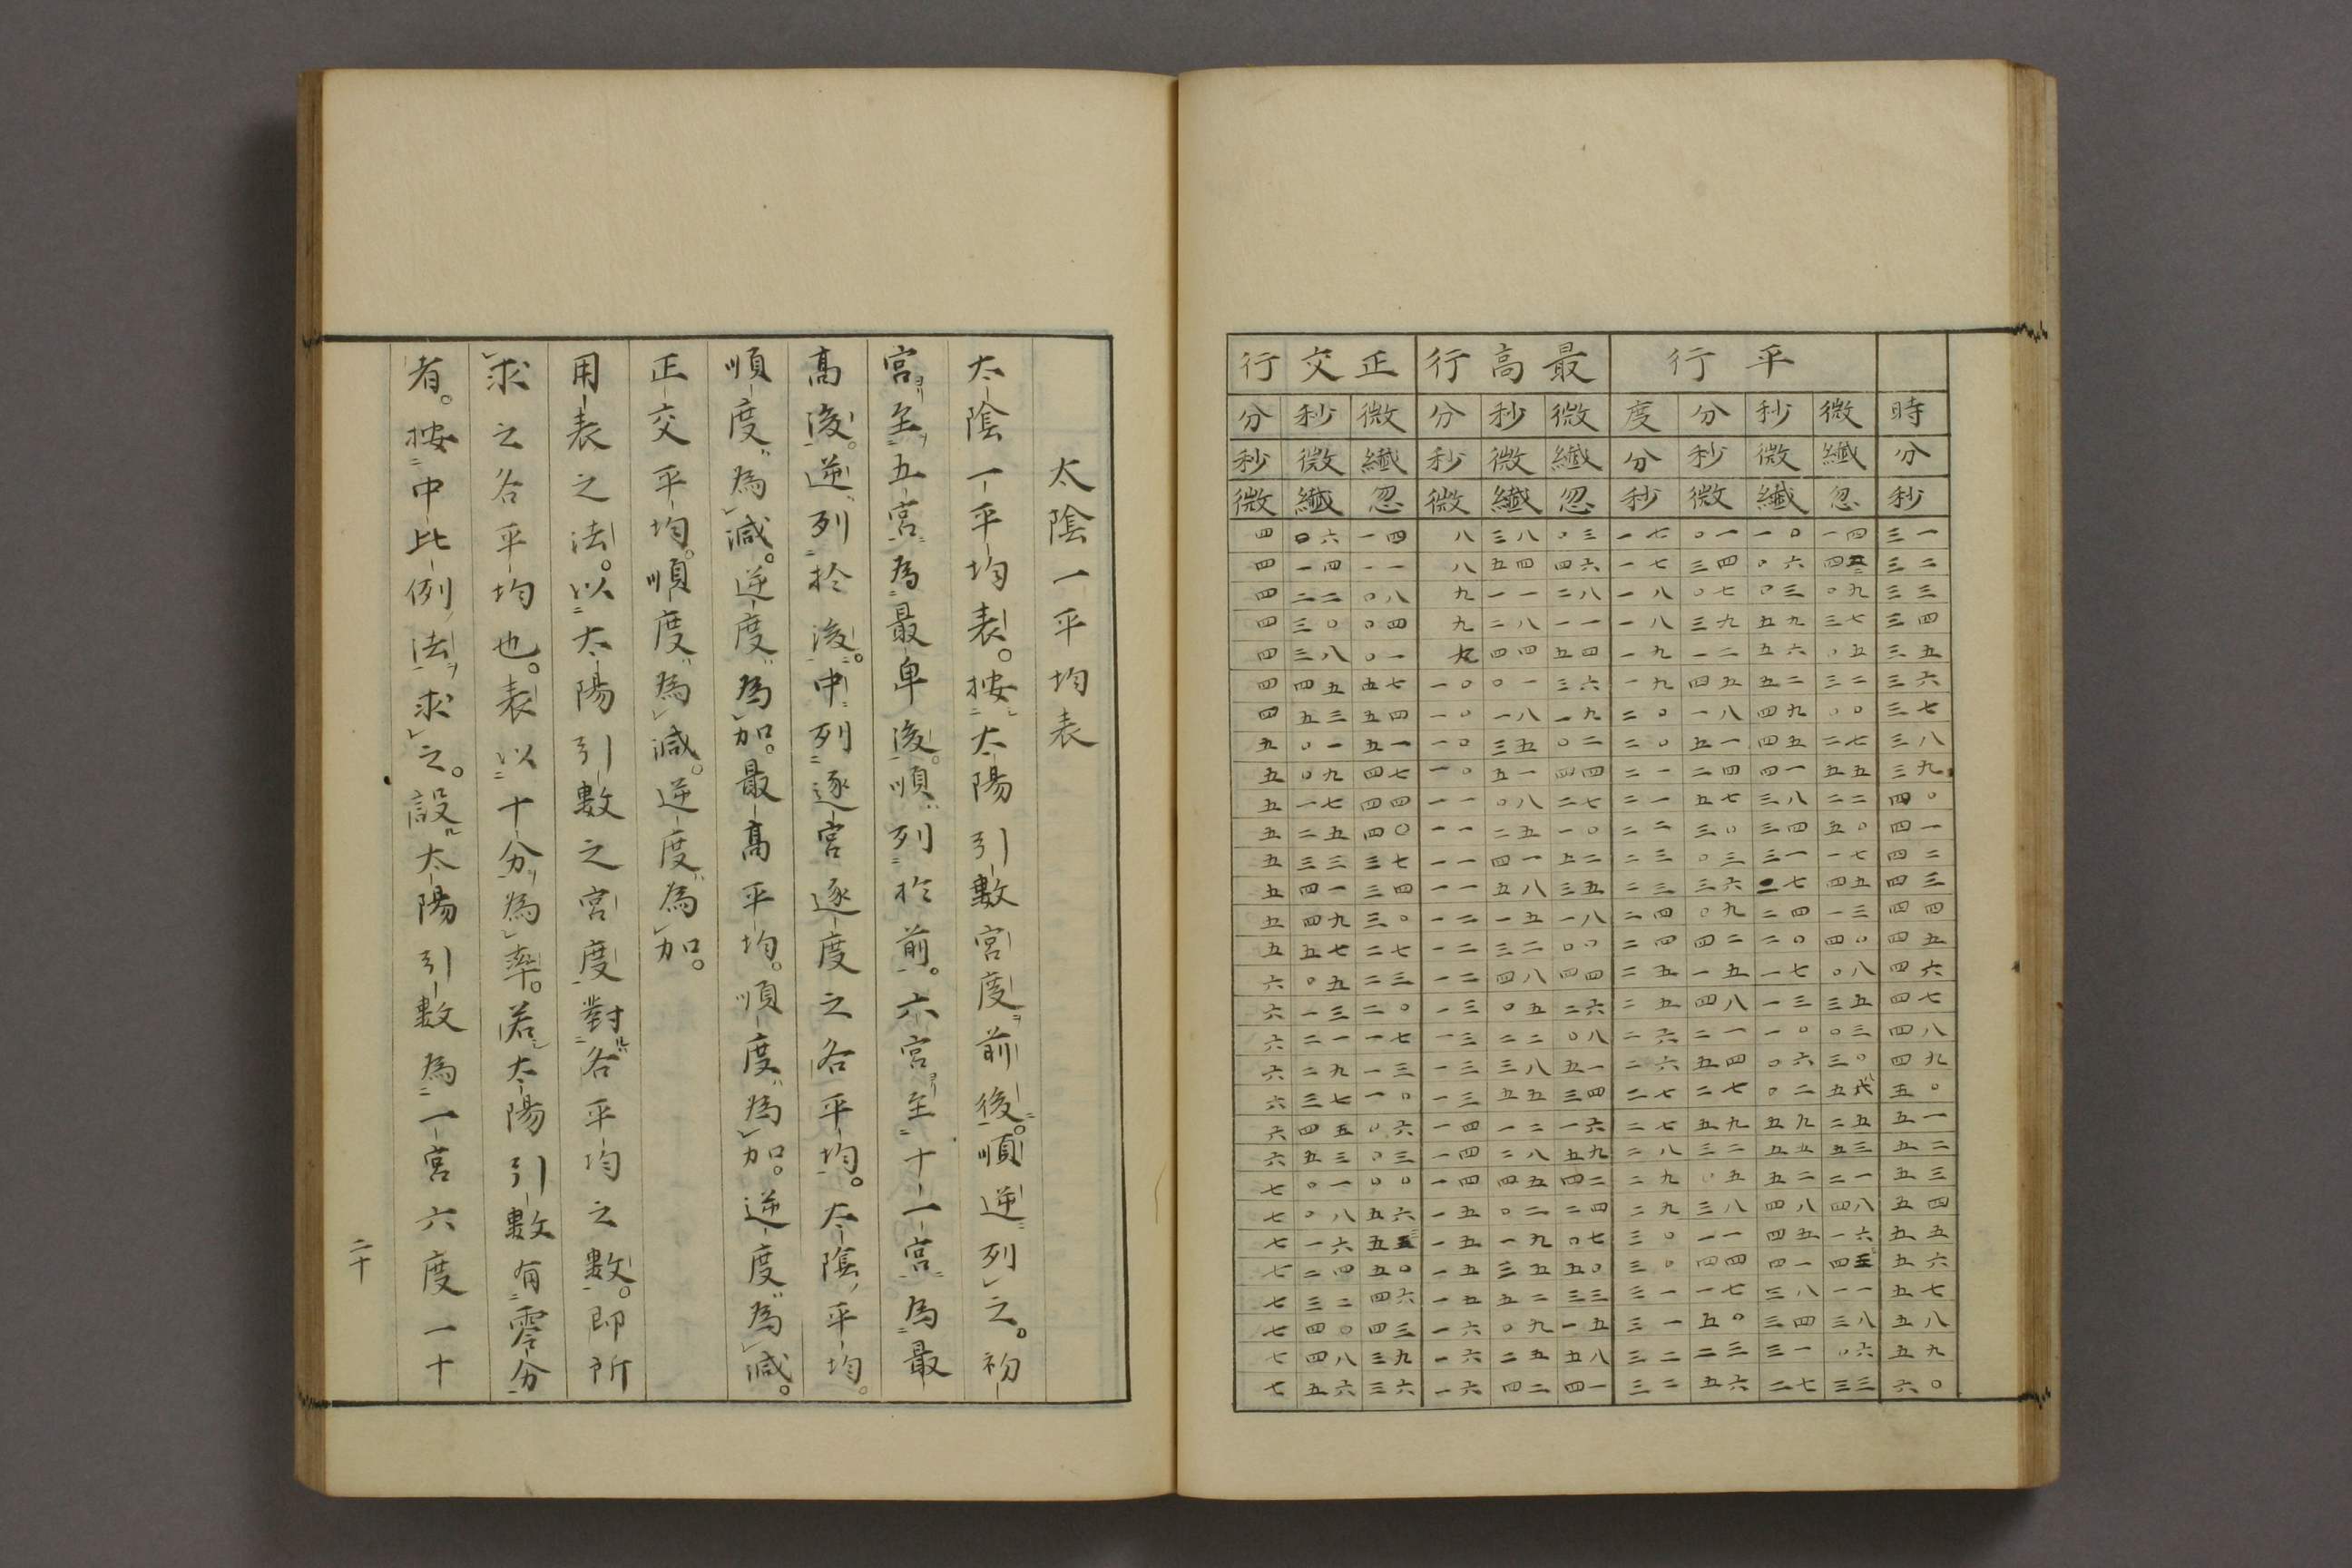 正交行 最高行 平行
分 秒 微 分 秒 微 度 分 秒 微 時
秒 微 纎 秒 微 纎 分 秒 微 纎 分
微 纎 忽 微 纎 忽 秒 微 纎 忽 秒
四 〇六 一四 八 三八 〇三 一七 〇一 一〇 一四 三一
四 一四 一一 八 五四 四六 一七 三四 〇六 四二 三二
四 二二 〇八 九 一一 二八 一八 〇七 〇三 〇九 三三
四 三〇 〇四 九 二八 一一 一八 三九 五九 三七 三四
四 三八 〇一 九 四四 五四 一九 一二 五六 〇五 三五
四 四五 五七 一〇 〇一 三六 一九 四五 五二 三二 三六
四 五三 五四 一〇 一八 一九 二〇 一八 四九 〇〇 三七
五 〇一 五一 一〇 三五 〇二 二〇 五一 四五 二七 三八
五 〇九 四七 一〇 五一 四四 二一 二四 四一 五五 三九
五 一七 四四 一一 〇八 二七 二一 五七 三八 二二 四〇
五 二五 四〇 一一 二五 一〇 二二 三〇 三四 五〇 四一
五 三三 三七 一一 四一 五二 二三 〇三 三一 一七 四二
五 四一 三四 一一 五八 三五 二三 三六 二七 四五 四三
五 四九 三〇 一二 一五 一八 二四 〇九 二四 一三 四四
五 五七 二七 一二 三二 〇〇 二四 四二 二〇 四〇 四五
六 〇五 二三 一二 四八 四四 二五 一五 一七 〇八 四六
六 一三 二〇 一三 〇五 二六 二五 四八 一三 三五 四七
六 二一 一七 一三 二二 〇八 二六 二一 一〇 〇三 四八
六 二九 一三 一三 三八 五一 二六 五四 〇六 三〇 四九
六 三七 一〇 一三 五五 三四 二七 二七 〇二 五八 五〇
六 四五 〇六 一四 一二 一六 二七 五九 五九 二五 五一
六 五三 〇三 一四 二八 五九 二八 三二 五五 五三 五二
七 〇一 〇〇 一四 四五 四二 二九 〇五 五二 二一 五三
七 〇八 五六 一五 〇二 二四 二九 三八 四八 四八 五四
七 一六 五三 一五 一九 〇七 三〇 一一 四五 一六 五五
七 二四 五〇 一五 三五 五〇 三〇 四四 四一 四三 五六
七 三二 四六 一五 五二 三三 三一 一七 三八 一一 五七
七 四〇 四三 一六 〇九 一五 三一 五〇 三四 三八 五八
七 四八 三九 一六 二五 五八 三二 二三 三一 〇六 五九
七 五六 三六 一六 四二 四一 三二 五六 二七 三三 六〇
太陰一平均表
太陰一平均表。按太陽引數宮度前後。順逆列之。初
宮至五宮為最卑後。順列於前。六宮至十一宮為最
高後。逆列於後。中列逐宮逐度之各平均。太陰平均。
順度為減。逆度為加。最高平均。順度為加。逆度為減。
正交平均。順度為減。逆度為加。
用表之法。以太陽引數之宮度對各平均之數。即所
求之各平均也。表以十分為率。若太陽引數有零分
者。按中比例法求之。設太陽引數為一宮六度一十
二十